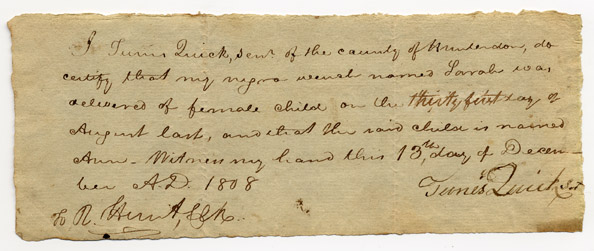 I Tunis Quick, senr. of the county of Hunterdon, do
certify that my negro wench named Sarah was
delivered of female child on the thirty first day of
August last, and that the said child is named
Ann - Witness my hand this 13th day of Decem-
ber A.D. 1808
Tunes Quick
To R. Hunt, Clk.